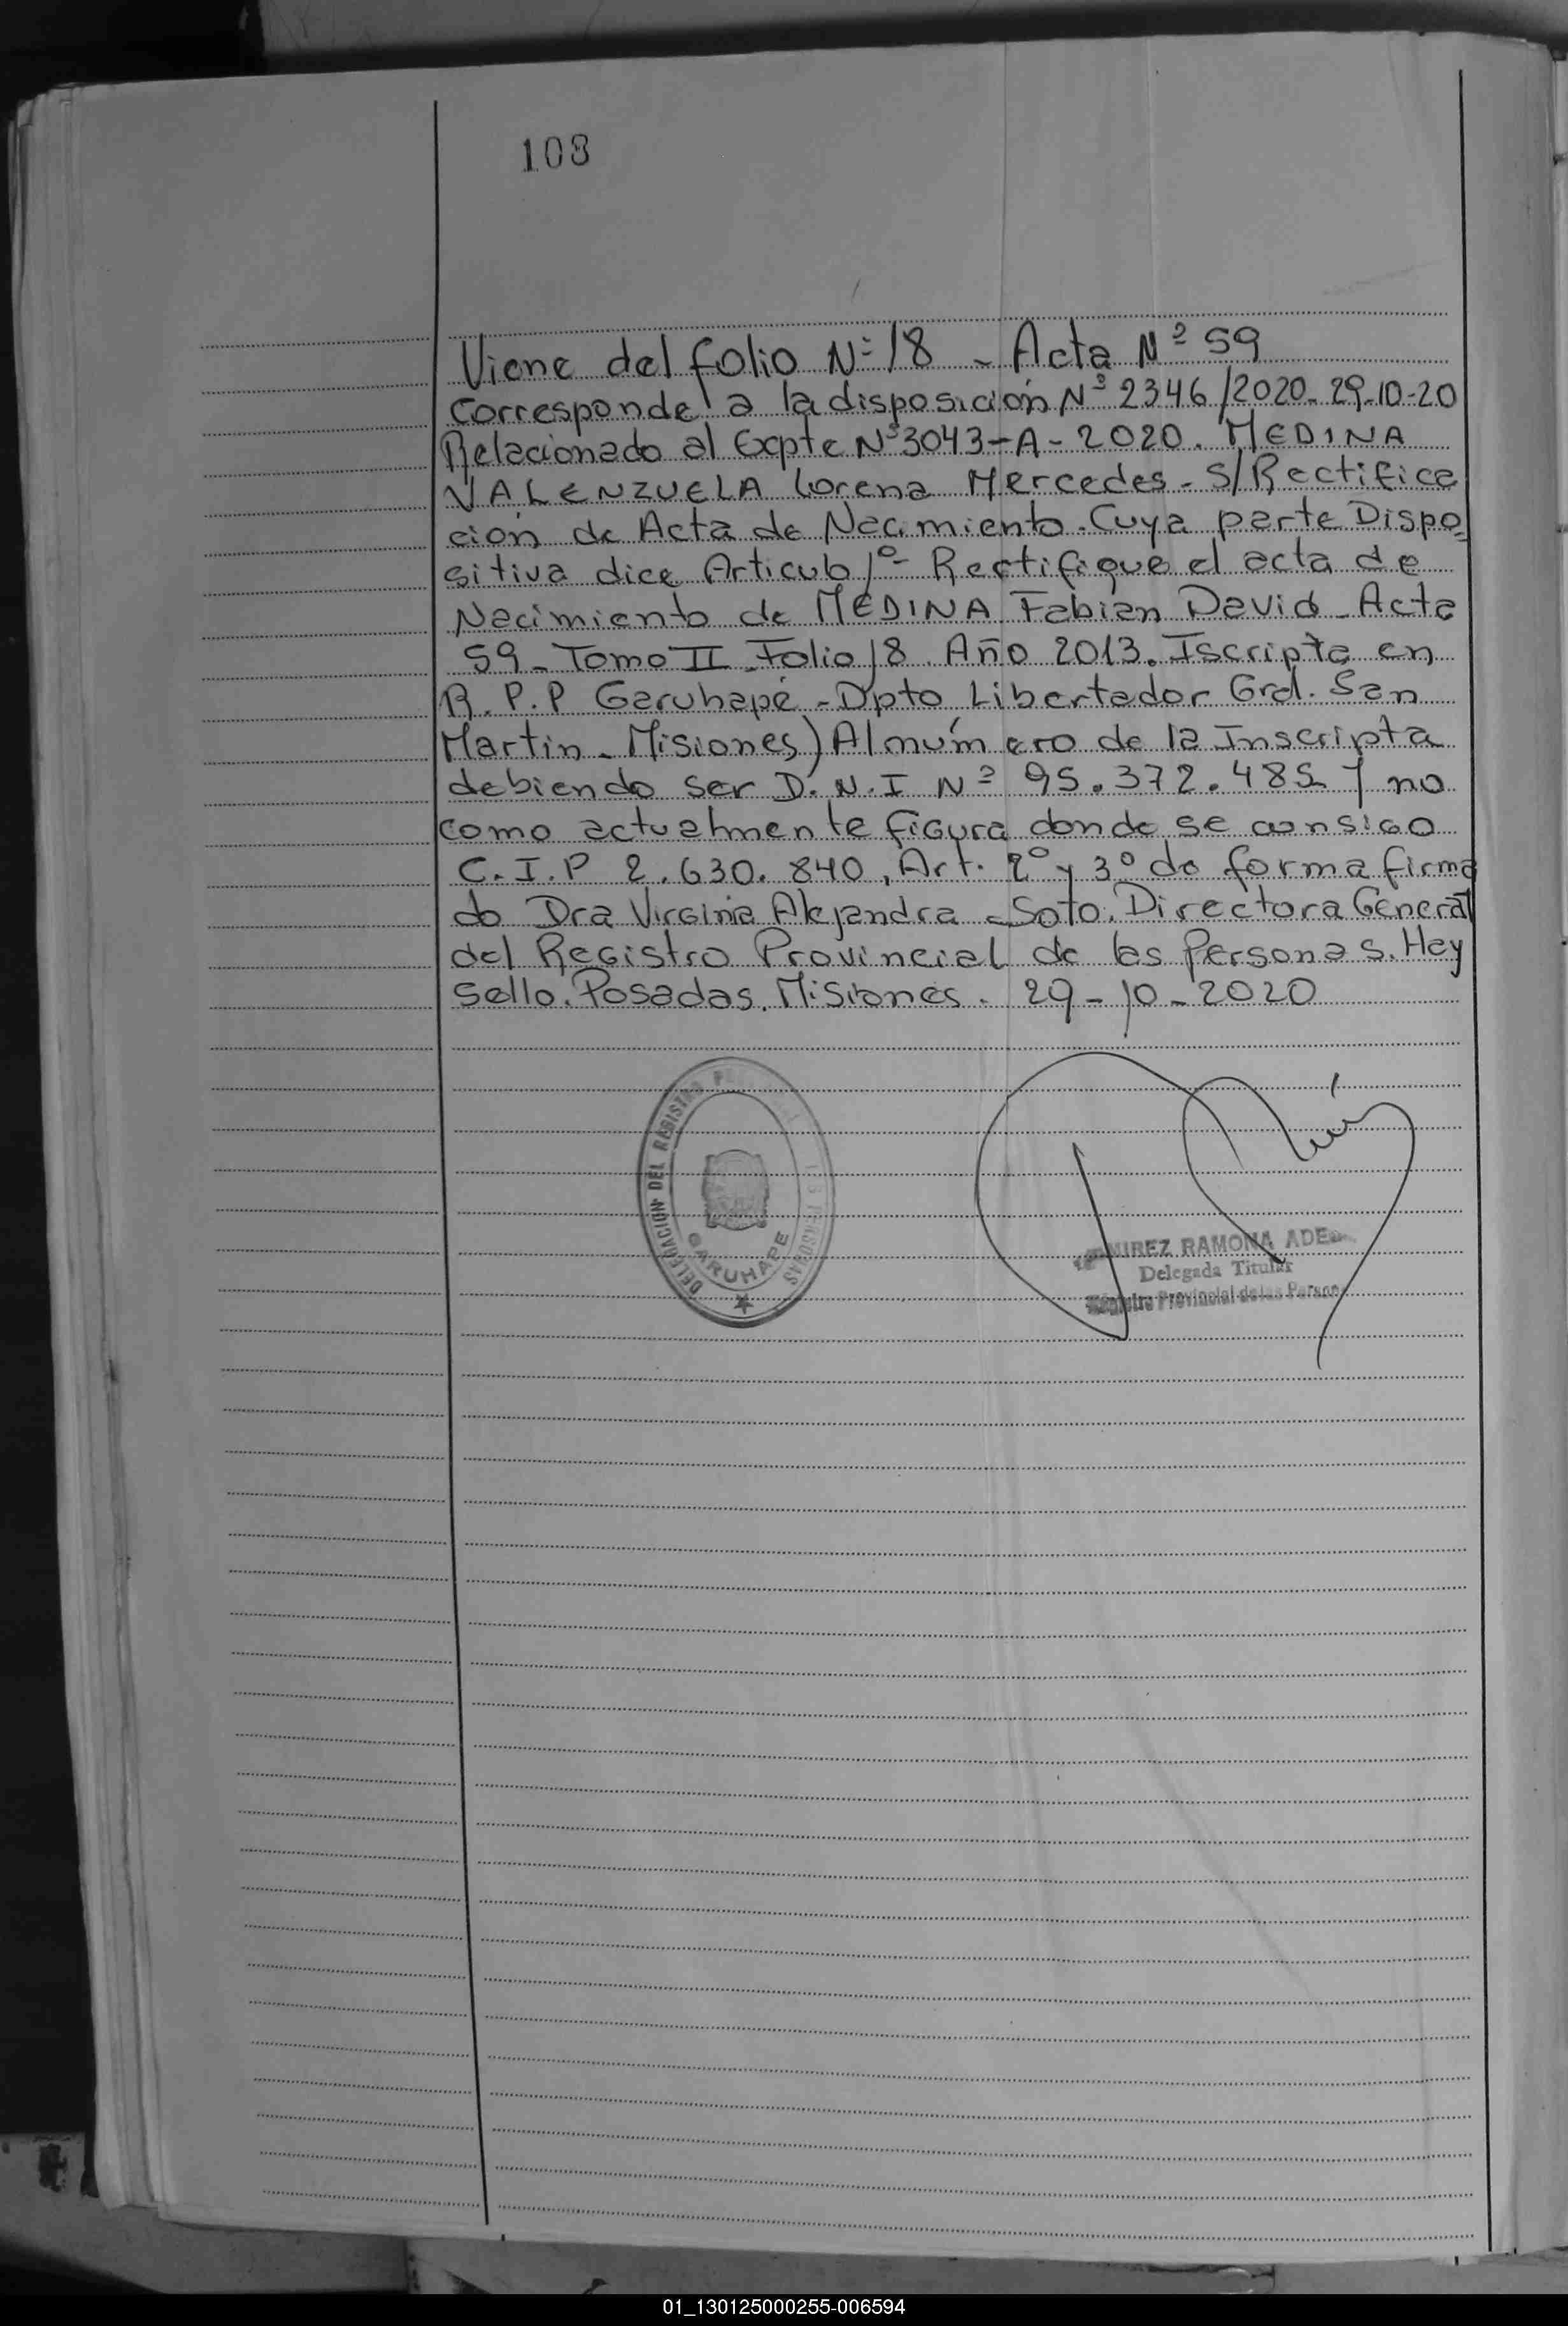 108
Viene del folio Nº 18 - Acta Nº 59
Corresponde a la disposición Nº 2346/2020- 29-10-20
Relacionado al Expte Nº 3043-A-2020. MEDINA
VALENZUELA Lorena Mercedes - S/Rectifica
ción de Acta de Nacimiento. Cuya parte Dispo=
sitiva dice Articulo 1º- Rectifique el acta de
Nacimiento de MEDINA Fabián David - Acta
59 - Tomo II - Folio 18. Año 2013. Iscripta en
R.P.P Garuhapé - Dpto Libertador Gral. San
Martin - Misiones) Al número de la Inscripta
debiendo ser D.N.I Nº 95.372.485 y no
como actualmente figura donde se consigo
C.I.P 2.630.840, Art. 2º y 3º de forma firma
do Dra Virginia Alejandra - Soto. Directora General
del Registro Provincial de las Personas. Hay
Sello. Posadas, Misiones - 29-10-2020
DELEGACION DEL REGISTRO PERSONAS
GARUHAPE
RAMONA
Delegada Titular
Registro Provincial de las Person
01_130125000255-006594